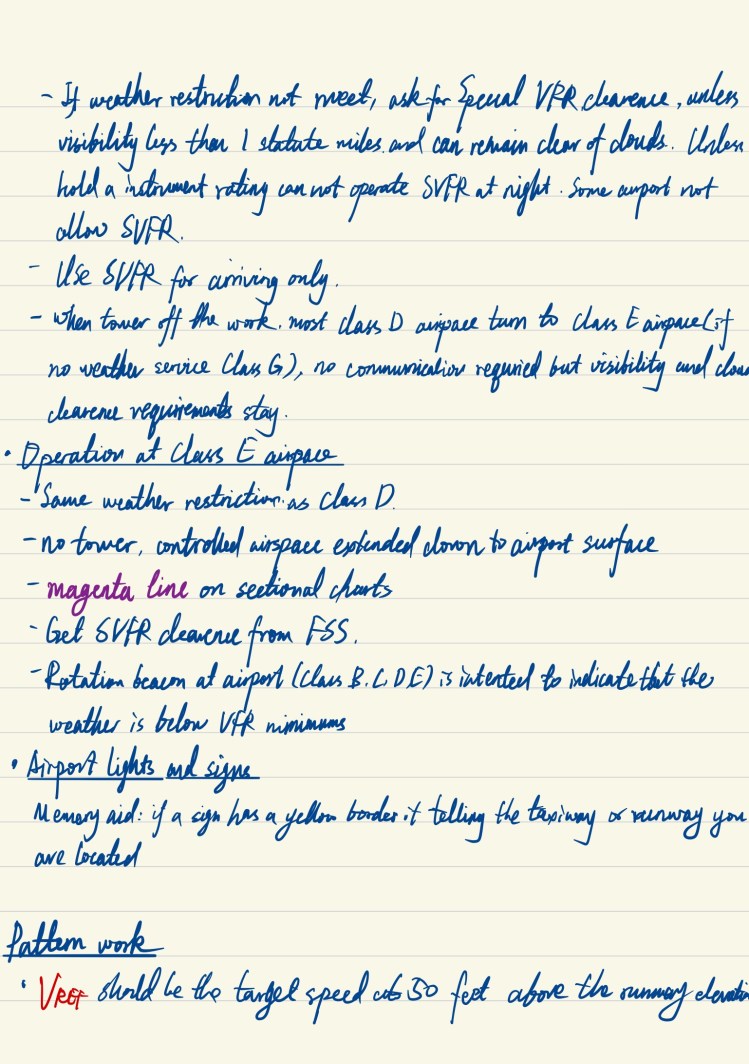 - If weather restriction not meet, ask for Special VFR clearence, unless
visibility less than 1 statute miles. and can remain clear of clouds. Unless
hold a instrument rating can not operate SVFR at night. Some airport not
allow SVFR.
- Use SVFR for arriving only.
- when tower off the work, most class D airpace turn to class E airpace (if
no weather service Class G), no communication required but visibility and clou
clearence requirements stay.
• Operation at Class E airpace
- Same weather restriction as Class D.
- no tower, controlled airspace extended down to airport surface
- magenta line on sectional charts
- Get SVFR clearence from FSS.
- Rotation beacon at airport (Class B.C.D.E) is intented to indicate that the
weather is below VFR minimums
• Airport lights and signs
Memory aid: if a sign has a yellow border it telling the taxiway or runway you
are located
Pattern work
• VREF should be the target speed at 50 feet above the runway elevatio